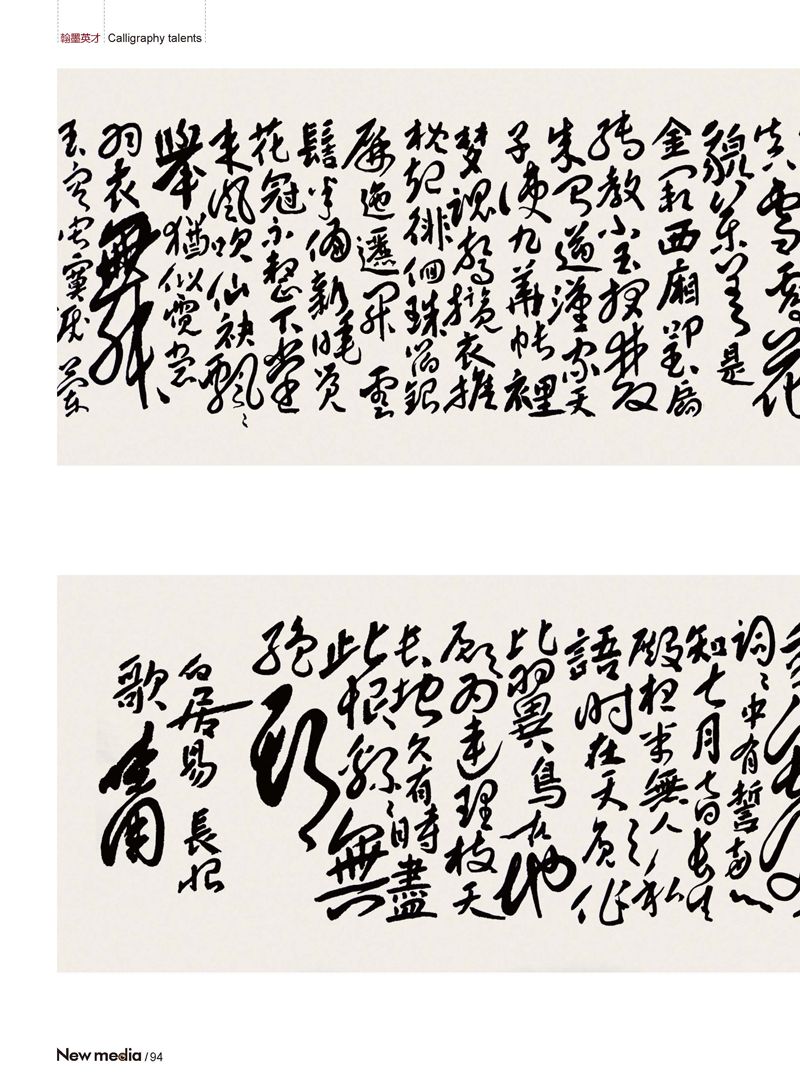 翰墨英才 Calligraphy talents
真雪膚花
貌參差是
金闕西廂叩玉扃
轉教小玉報雙成
聞道漢家天
子使九華帳裡
夢魂驚攬衣推
枕起徘徊珠箔銀
屏迤邐開雲
鬢半偏新睡覺
花冠不整下堂
來風吹仙袂飄〻
舉猶似霓裳
羽衣舞
玉容寂寞淚闌
詞〻中有誓兩心
知七月七日長生
殿夜半無人私
語時在天願作
比翼鳥在地
願為連理枝天
長地久有時盡
此恨綿〻無
絕期
白居易 長恨
歌
New media / 94